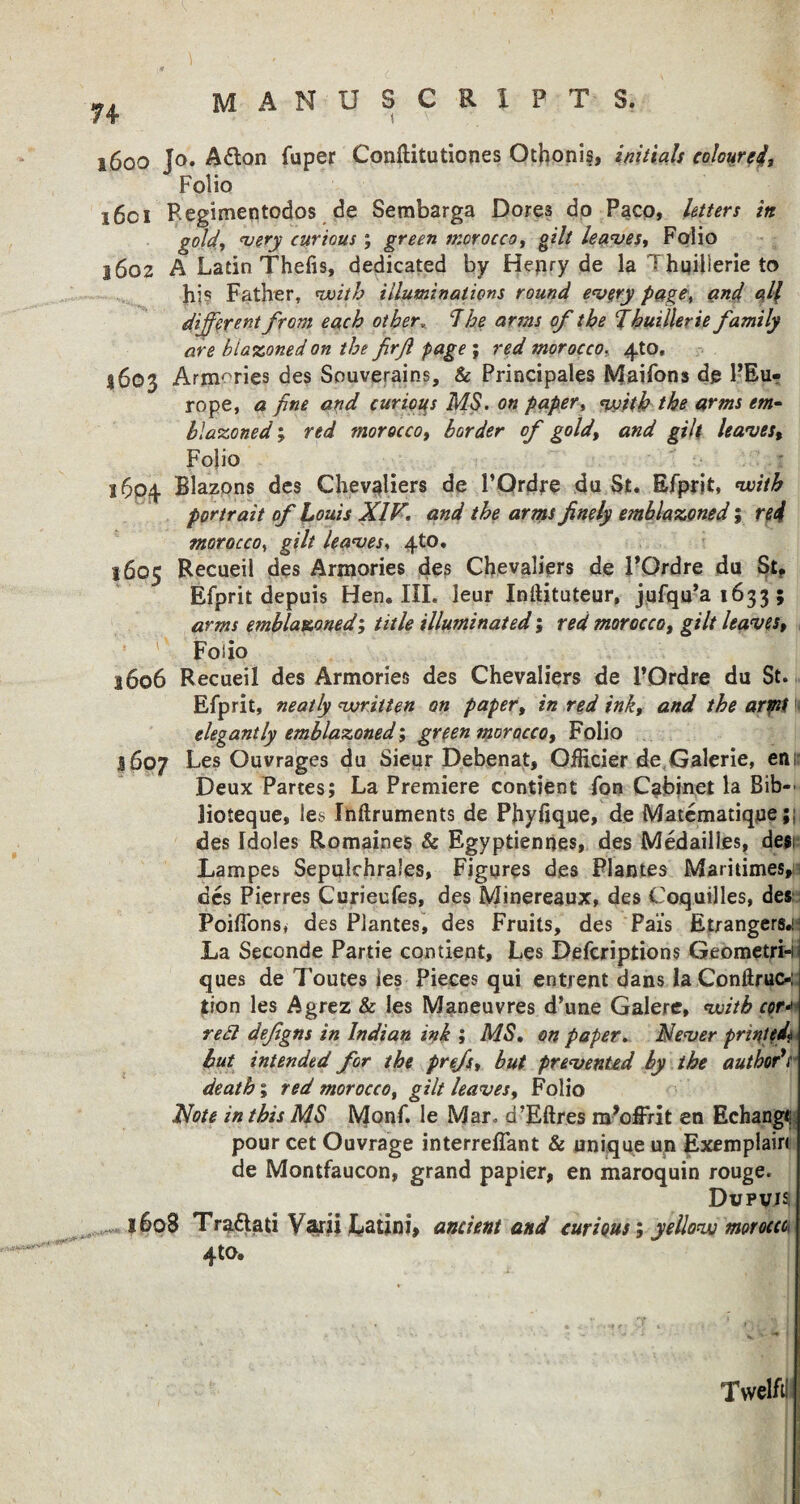 74 MANUSCRIPTS.
1600 Jo. Aƈton ſuper Conſtitutiones Othonis, initials coloured,
Folio
1601 Regimentodos de Sembarga Dores do Paço, letters in
gold, very curious ; green morocco, gilt leaves, Folio
1602 A Latin Theſis, dedicated by Henry de la Thuillerie to
his Father, with illuminations round every page, and all
different from each other. The arms of the Thuillerie family
are blazoned on the firſt page ; red morocco. 4to.
1603 Armories des Souverains, & Principales Maiſons de l'Eu-
rope, a fine and curious MS. on paper, with the arms em-
blazoned ; red morocco, border of gold, and gilt leaves,
Folio
1604 Blazons des Chevaliers de l'Ordre du St. Eſprit, with
portrait of Louis XIV. and the arms finely emblazoned ; red
morocco, gilt leaves, 4to.
1605 Recueil des Armories des Chevaliers de l'Ordre du St.
Eſprit depuis Hen. III. leur Inſtituteur, juſqu'a 1633 ;
arms emblazoned; title illuminated ; red morocco, gilt leaves,
Folio
1606 Recueil des Armories des Chevaliers de l'Ordre du St.
Eſprit, neatly written on paper, in red ink, and the arms
elegantly emblazoned ; green morocco, Folio
1607 Les Ouvrages du Sieur Debenat, Officier de Galerie, en
Deux Partes; La Premiere contient ſon Cabinet la Bib-
lioteque, les Inſtruments de Phyſique, de Matématique ;
des Idoles Romaines & Egyptiennes, des Médailles, des
Lampes Sepulchrales, Figures des Plantes Maritimes,
dés Pierres Curieuſes, des Minereaux, des Coquilles, des
Poiſſons, des Plantes, des Fruits, des Païs Etrangers.
La Seconde Partie contient, Les Deſcriptions Geometri-
ques de Toutes les Pieces qui entrent dans la Conſtruc-
tion les Agrez & les Maneuvres d'une Galere, with cor-
rect deſigns in Indian ink ; MS. on paper. Never printed,
but intended for the preſs, but prevented by the author's
death ; red morocco, gilt leaves, Folio
Note in this MS Monſ. le Mar. d'Eſtres m'offrit en Echange
pour cet Ouvrage interreſſant & unique un Exemplaire
de Montfaucon, grand papier, en maroquin rouge.
DUPUIS
1608 Traƈtati Varii Latini, ancient and curious ; yellow morocco
4to.
Twelfth